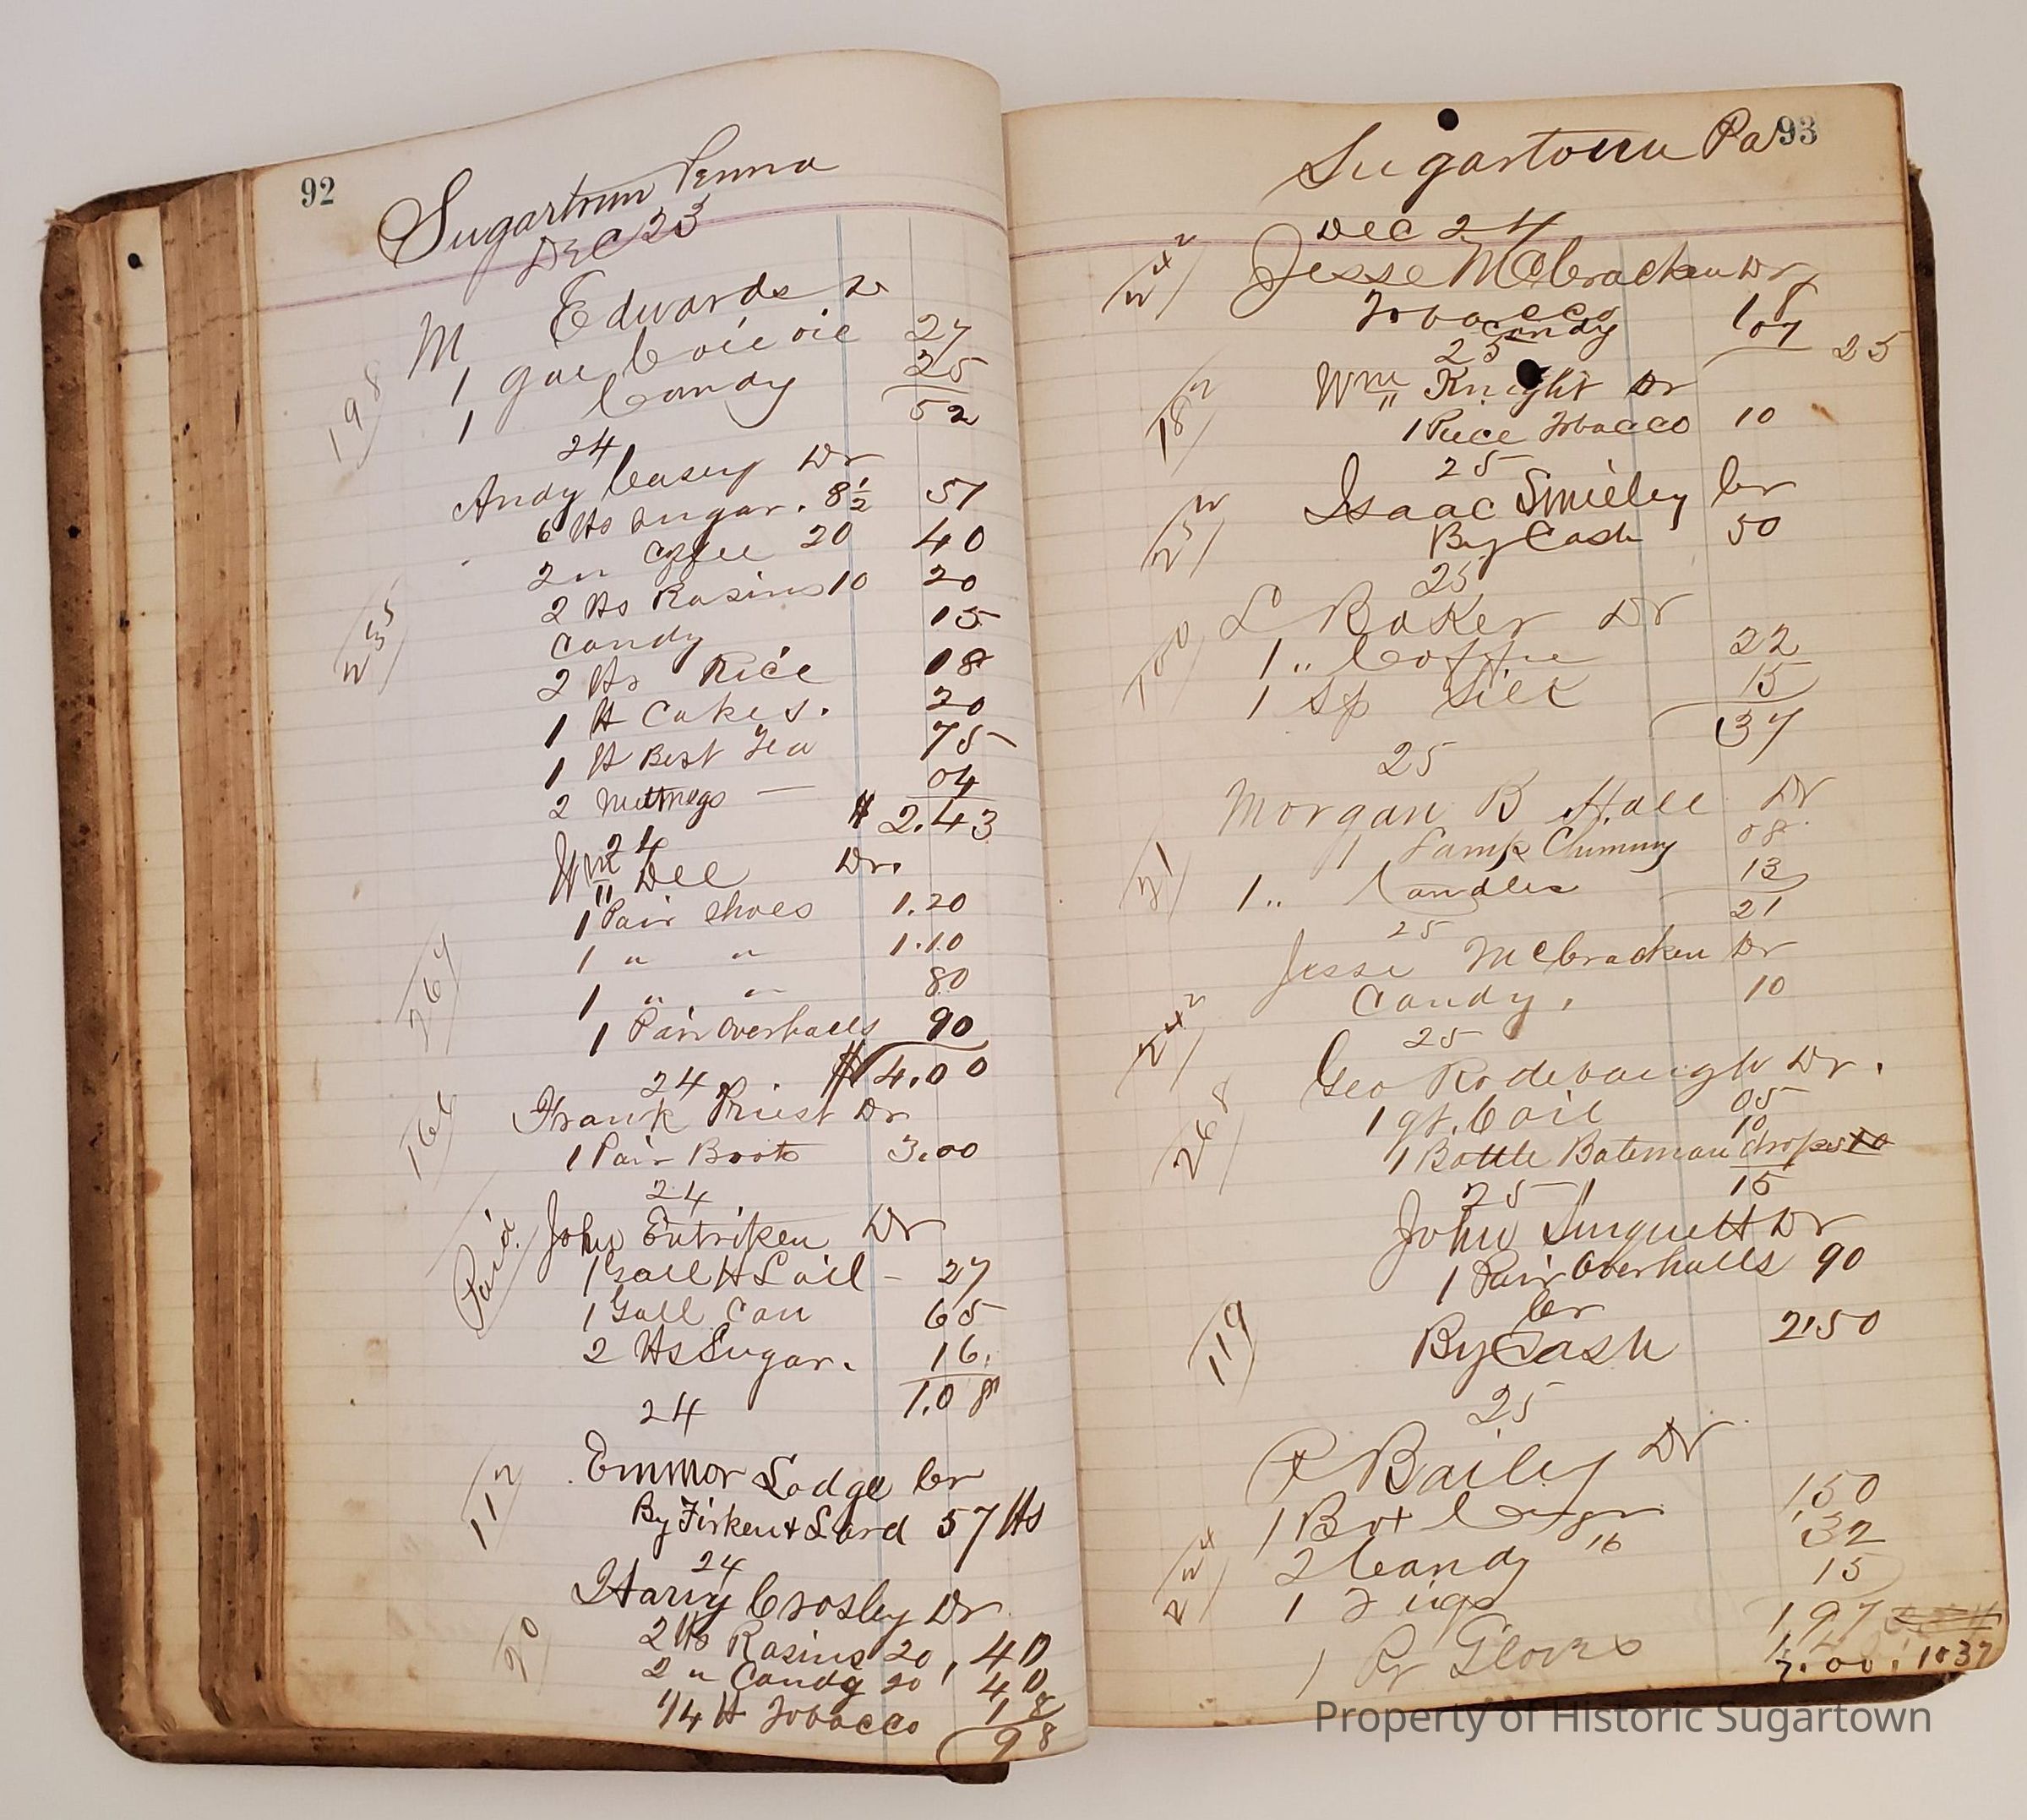 92
Sugartown Penna
Dec 23
M Edwards Dr
198
1 gal Coil oil 27
1 Candy 25
52
24
Andy Casey Dr
6 lbs Sugar. 8½ 51
2 " Coffee 20 40
235
2 lbs Rasins 10 20
Candy 15
2 lbs Rice 18
1 lb Cakes. 20
1 lb Best Tea 75
2 Nutmegs — 04
$ 2.43
24
Wm Dell Dr.
1 Pair Shoes 1.20
1 " " 1.10
264
1 " " 80
1 Pair Overhalls 90
$ 4.00
24
Frank Priest Dr
164
1 Pair Boots 3.00
24
John Entriken Dr
Paid.
1 Gall H L oil - 27
1 Gall Can 65
2 lbs Sugar. 16.
1.08
24
Emmor Lodge Cr
112
By Firken + Lard 57 lbs
24
Harry Crosley Dr
20
2 lbs Rasins 20, 40
2 " Candy 20 40
1/4 lb Tobacco 18
98
93
Sugartown Pa
Dec 24
242
Jesse McCracken Dr
Tobacco 18
Candy 07
25
25
Wm Knight Dr
182
1 Piece Tobacco 10
25
Isaac Smiley Cr
252
By Cash 50
25
L Baker Dr
100
1 " Coffee 22
1 Sp Silk 15
37
25
Morgan B Hall Dr
1 Lamp Chimny 08
31
1 " Candles 13
21
25
Jesse McCracken Dr
242
Candy. 10
25
Geo Rodebaugh Dr.
1 qt. C oil 05
268
1 Bottle Bateman drops 10
10
15
25
John Surquett Dr
1 Pair Overhalls 90
Cr
119
By Cash 2.50
25
P Bailey Dr
1 Box 1.50
2 Candy 16 32
224
1 Figs 15
197
1 Pr Gloves
Property of Historic Sugartown